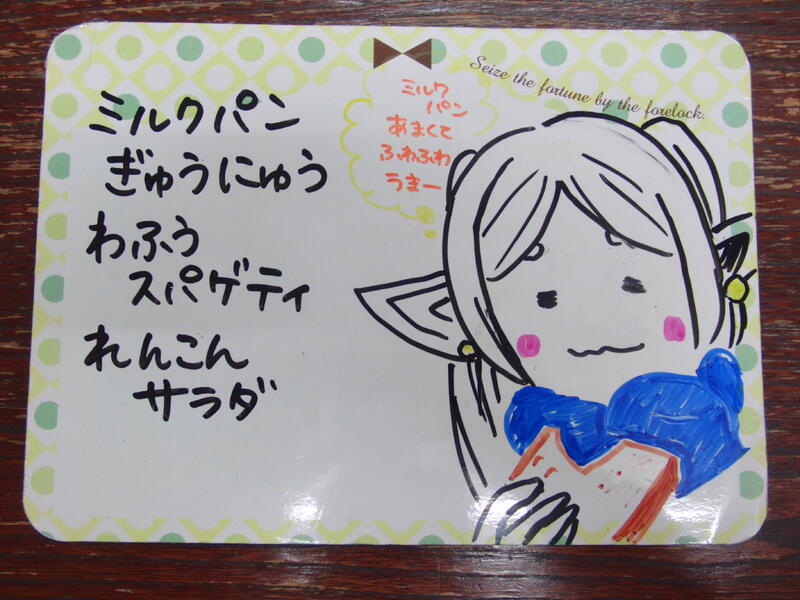 Seize the fortune by the forelock.
ミルクパン
ぎゅうにゅう
わふう
スパゲティ
れんこん
サラダ
ミルク
パン
あまくて
ふわふわ
うまー